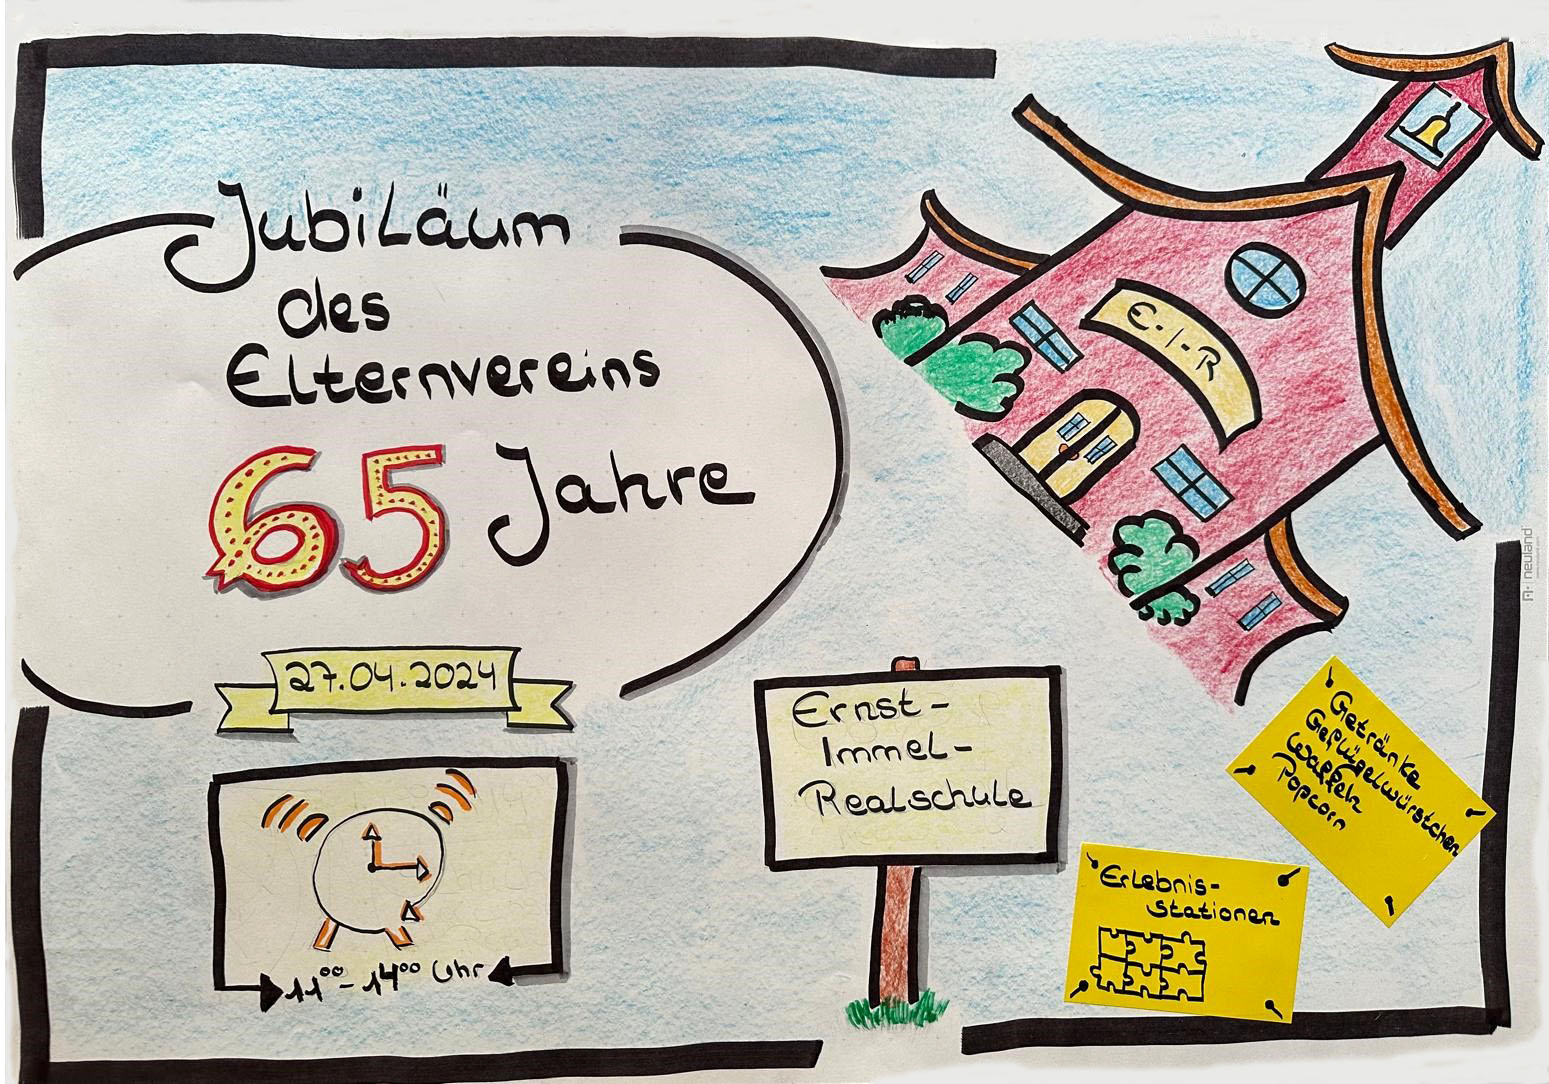 Jubiläum
des
Elternvereins
65 Jahre
27.04.2024
11⁰⁰-14⁰⁰ Uhr
E.I.R
Ernst-
Immel-
Realschule
Getränke
Geflügelwürstchen
Waffeln
Popcorn
Erlebnis-
stationen
neuland